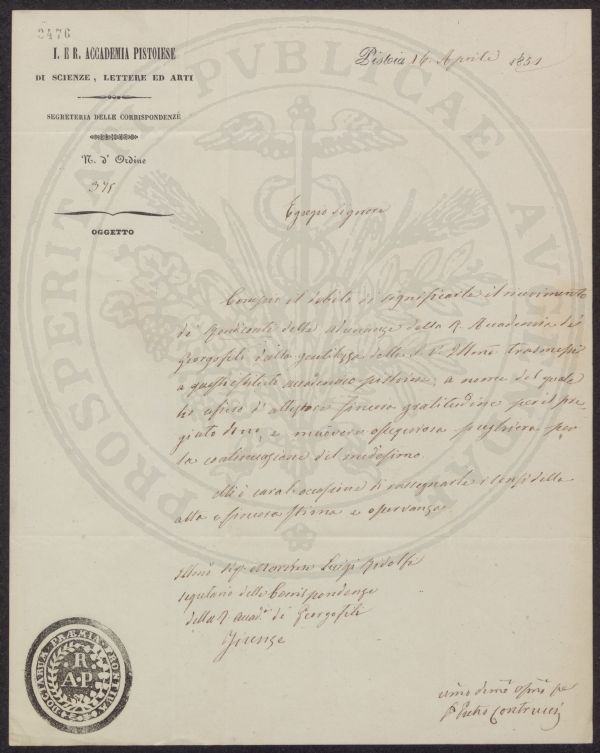 2476
I. E R. ACCADEMIA PISTOIESE
DI SCIENZE, LETTERE ED ARTI
SEGRETERIA DELLE CORRISPONDENZE
N. d' Ordine
378
OGGETTO
Pistoia 16 Aprile 1851
Egregio Signore
Compio il debito di significarle il ricevimento
de' Rendiconti delle adunanze della R. Accademia de'
Georgofili dalla gentilezza della S. V. Illma trasmessi
a questo Istituto accademico pistoiese, a nome del quale
ho a attestare sincera gratitudine per il pre-
giato dono, e muovere ossequiosa preghiera per
la continuazione del medesimo.
Mi è cara l'occasione di rassegnarle i sensi della
alta e sincera stima e osservanza
Illmo Sig. Marchese Luigi Ridolfi
Segretario delle Corrispondenze
della R. Accad. de' Georgofili
Firenze
umo devmo
P. Pietro Contrucci
DOCTARUM PRÆMIA FRONTIUM
R
A.P.
PROSPERITATI PVBLICAE AVGENDAE